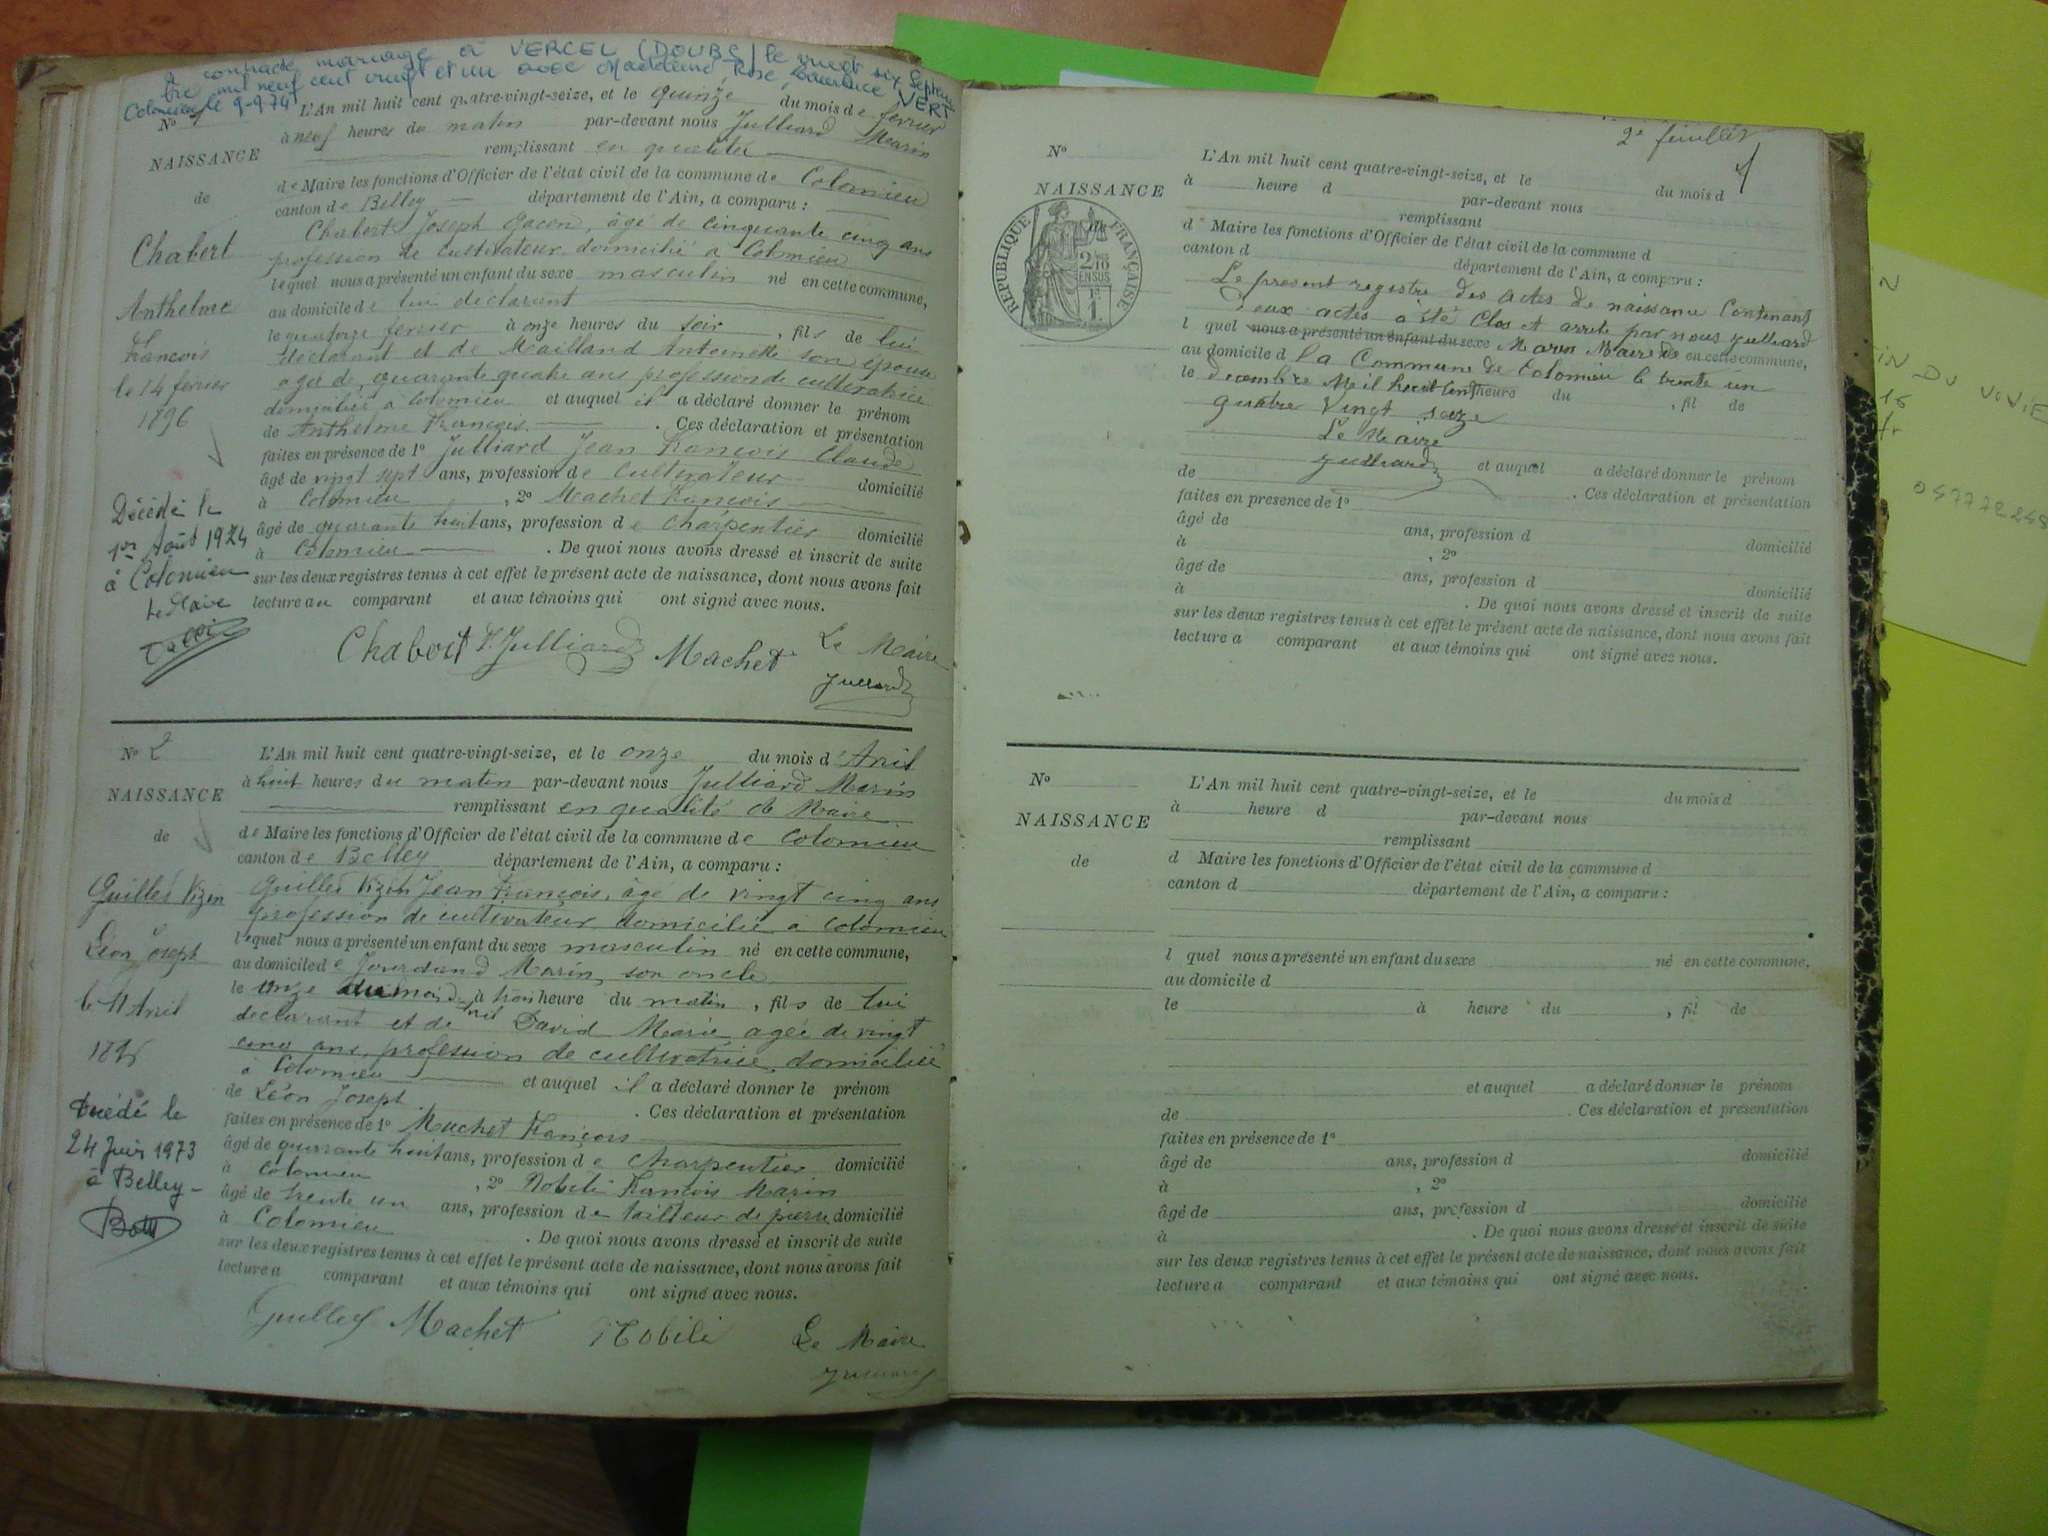 a contracté mariage à VERCEL (DOUBS) le vingt six Septem
bre mil neuf cent vingt et un avec Madeleine, Rose, Laurence VERT
Colomieu le 9-9-74
L'An mil huit cent quatre-vingt-seize, et le quinze du mois de fevrier
No
à neuf heures du matin par-devant nous Julliard Marin
NAISSANCE
remplissant en qualitée
de Maire les fonctions d'Officier de l'état civil de la commune de Colomieu
de
canton de Belley département de l'Ain, a comparu :
Chabert Joseph Gacon, âgé de cinquante cinq ans
Chabert
profession de cultivateur domicilié à Colomieu
lequel nous a présenté un enfant du sexe masculin né en cette commune,
au domicile de lui declarant
Anthelme
le quatorze fevrier à onze heures du soir, fils de lui
François
declarant et de Mailland Antoinette son épouse
agée de quarante quatre ans profession de cultivatrice
le 14 fevrier
domiciliée à Colomieu et auquel il a déclaré donner le prénom
1896
de Anthelme François. Ces déclaration et présentation
faites en présence de 1o Julliard Jean François Claude
âgé de vingt sept ans, profession de cultivateur domicilié
à Colomieu, 2o Machet François
Décédé le
âgé de quarante huit ans, profession de charpentier domicilié
1er Août 1974
à Colomieu. De quoi nous avons dressé et inscrit de suite
à Colomieu
sur les deux registres tenus à cet effet le présent acte de naissance, dont nous avons fait
Le Maire
lecture au comparant et aux témoins qui ont signé avec nous.
Chabert F. Julliard Machet Le Maire
Julliard
No 2
L'An mil huit cent quatre-vingt-seize, et le onze du mois d'Avril
à huit heures du matin par-devant nous Julliard Marin
NAISSANCE
remplissant en qualité de Maire
de
de Maire les fonctions d'Officier de l'état civil de la commune de Colomieu
canton de Belley département de l'Ain, a comparu :
Guillet Vizen
Guillet Vizen Jean François, âgé de vingt cinq ans
profession de cultivateur domicilié à Colomieu
lequel nous a présenté un enfant du sexe masculin né en cette commune,
Léon Joseph
au domicile de Jourdand Marin son oncle
le onze du mois à trois heure du matin, fils de lui
le 11 Avril
declarant et de David Marie agée de vingt
1896
cinq ans profession de cultivatrice, domiciliée
à Colomieu et auquel il a déclaré donner le prénom
de Léon Joseph. Ces déclaration et présentation
Décédé le
faites en présence de 1o Machet François
24 Juin 1973
âgé de quarante huit ans, profession de charpentier domicilié
à Belley -
à Colomieu, 2o Nobili François Marin
âgé de trente un ans, profession de tailleur de pierre domicilié
à Colomieu. De quoi nous avons dressé et inscrit de suite
sur les deux registres tenus à cet effet le présent acte de naissance, dont nous avons fait
lecture a comparant et aux témoins qui ont signé avec nous.
Guillet Machet Nobili Le Maire
2e feuillet
No
L'An mil huit cent quatre-vingt-seize, et le du mois d
NAISSANCE
à heure d par-devant nous
remplissant
REPUBLIQUE FRANÇAISE
2/10 EN SUS
d Maire les fonctions d'Officier de l'état civil de la commune d
canton d département de l'Ain, a comparu :
Le present registre des actes de naissance Contenant
deux actes à été Clos et arreté par nous Julliard
l quel nous a présenté un enfant du sexe Marin Maire de en cette commune,
au domicile d la Commune de Colomieu le trente un
le decembre Mil huit cent heure du, fil de
quatre Vingt seize
Le Maire
Julliard
et auquel a déclaré donner le prénom
de. Ces déclaration et présentation
faites en présence de 1o
âgé de ans, profession d domicilié
à, 2o
âgé de ans, profession d domicilié
à. De quoi nous avons dressé et inscrit de suite
sur les deux registres tenus à cet effet le présent acte de naissance, dont nous avons fait
lecture a comparant et aux témoins qui ont signé avec nous.
No
L'An mil huit cent quatre-vingt-seize, et le du mois d
à heure d par-devant nous
NAISSANCE
remplissant
de
d Maire les fonctions d'Officier de l'état civil de la commune d
canton d département de l'Ain, a comparu :
l quel nous a présenté un enfant du sexe né en cette commune,
au domicile d
le à heure du, fil de
et auquel a déclaré donner le prénom
de. Ces déclaration et présentation
faites en présence de 1o
âgé de ans, profession d domicilié
à, 2o
âgé de ans, profession d domicilié
à. De quoi nous avons dressé et inscrit de suite
sur les deux registres tenus à cet effet le présent acte de naissance, dont nous avons fait
lecture a comparant et aux témoins qui ont signé avec nous.